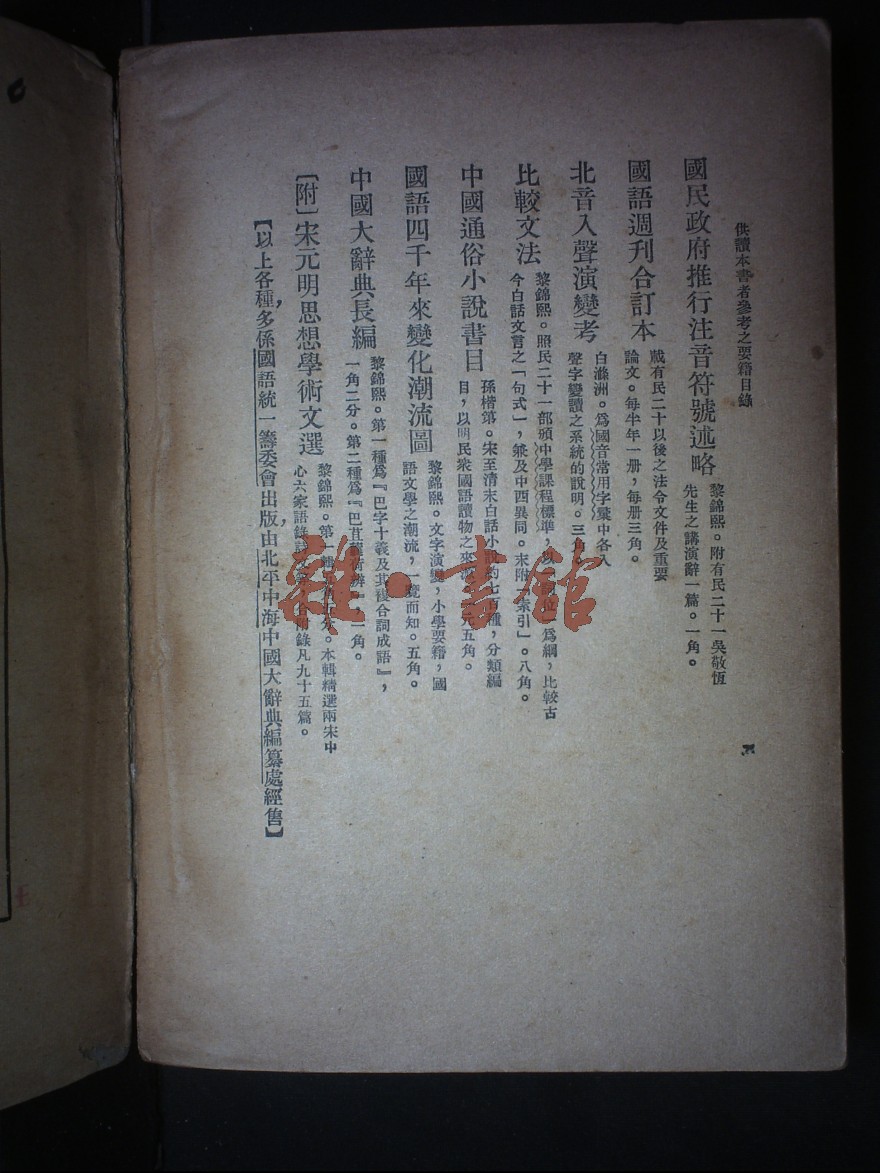 供讀本書者參考之要籍目錄
國民政府推行注音符號述略
黎錦熙。附有民二十一吳敬恆
先生之講演辭一篇。一角。
國語週刊合訂本
載有民二十以後之法令文件及重要
論文。每半年一册，每册三角。
北音入聲演變考
白滌洲。爲國音常用字彙中各入
聲字變讀之系統的說明。三角。
比較文法
黎錦熙。照民二十一部頒中學課程標準，以「位」爲綱，比較古
今白話文言之「句式」，兼及中西異同。末附「索引」。八角。
中國通俗小說書目
孫楷第。宋至清末白話小說約七百種，分類編
目，以明民衆國語讀物之來源。元五角。
國語四千年來變化潮流圖
黎錦熙。文字演變，小學要籍，國
語文學之潮流，一覽而知。五角。
中國大辭典長編
黎錦熙。第一種爲『巴字十義及其複合詞成語』，
一角二分。第二種爲『巴苴』，一角。
〔附〕宋元明思想學術文選
黎錦熙。第一種分。本輯精選兩宋中
心六家語錄錄凡九十五篇。
【以上各種，多係國語統一籌委會出版，由北平中海中國大辭典編纂處經售】
雜·書館